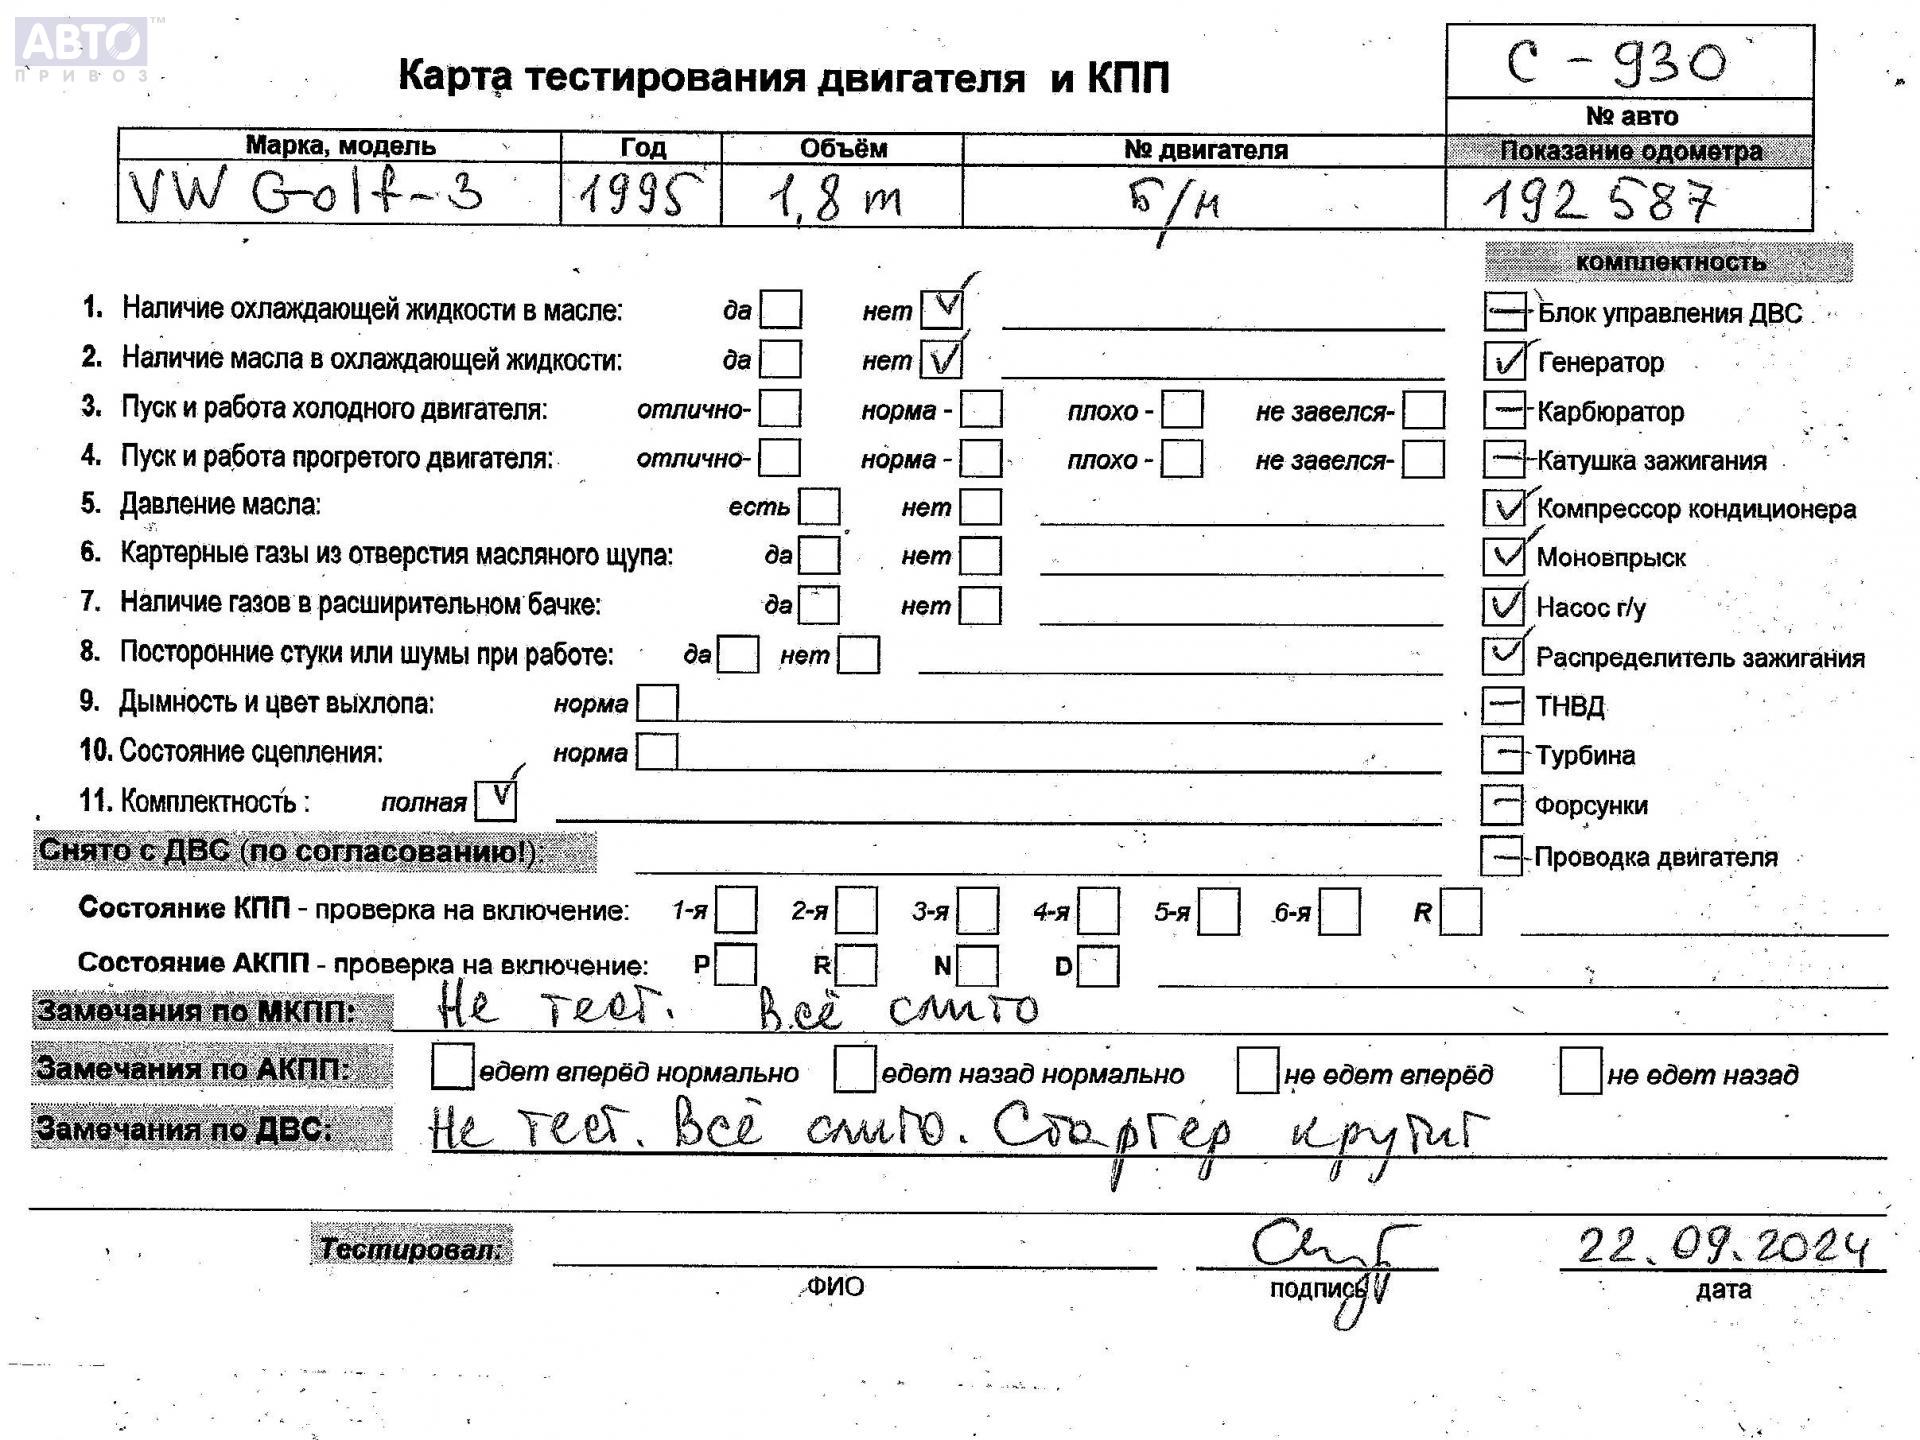 АВТО ™
ПРИВОЗ
Карта тестирования двигателя и КПП
С - 930
№ авто
Марка, модель Год Объём № двигателя Показание одометра
VW Golf-3 1995 1,8 m Б/н 192 587
комплектность
1. Наличие охлаждающей жидкости в масле: да нет
Блок управления ДВС
2. Наличие масла в охлаждающей жидкости: да нет
Генератор
3. Пуск и работа холодного двигателя: отлично- норма - плохо - не завелся-
Карбюратор
4. Пуск и работа прогретого двигателя: отлично- норма - плохо - не завелся-
Катушка зажигания
5. Давление масла: есть нет
Компрессор кондиционера
6. Картерные газы из отверстия масляного щупа: да нет
Моновпрыск
7. Наличие газов в расширительном бачке: да нет
Насос г/у
8. Посторонние стуки или шумы при работе: да нет
Распределитель зажигания
9. Дымность и цвет выхлопа: норма
ТНВД
10. Состояние сцепления: норма
Турбина
11. Комплектность : полная
Форсунки
Снято с ДВС (по согласованию!)
Проводка двигателя
Состояние КПП - проверка на включение: 1-я 2-я 3-я 4-я 5-я 6-я R
Состояние АКПП - проверка на включение: P R N D
Замечания по МКПП: Не тест. Всё слито
Замечания по АКПП: едет вперёд нормально едет назад нормально не едет вперёд не едет назад
Замечания по ДВС: Не тест. Всё слито. Стартер крутит
Тестировал: 22.09.2024
ФИО подпись дата